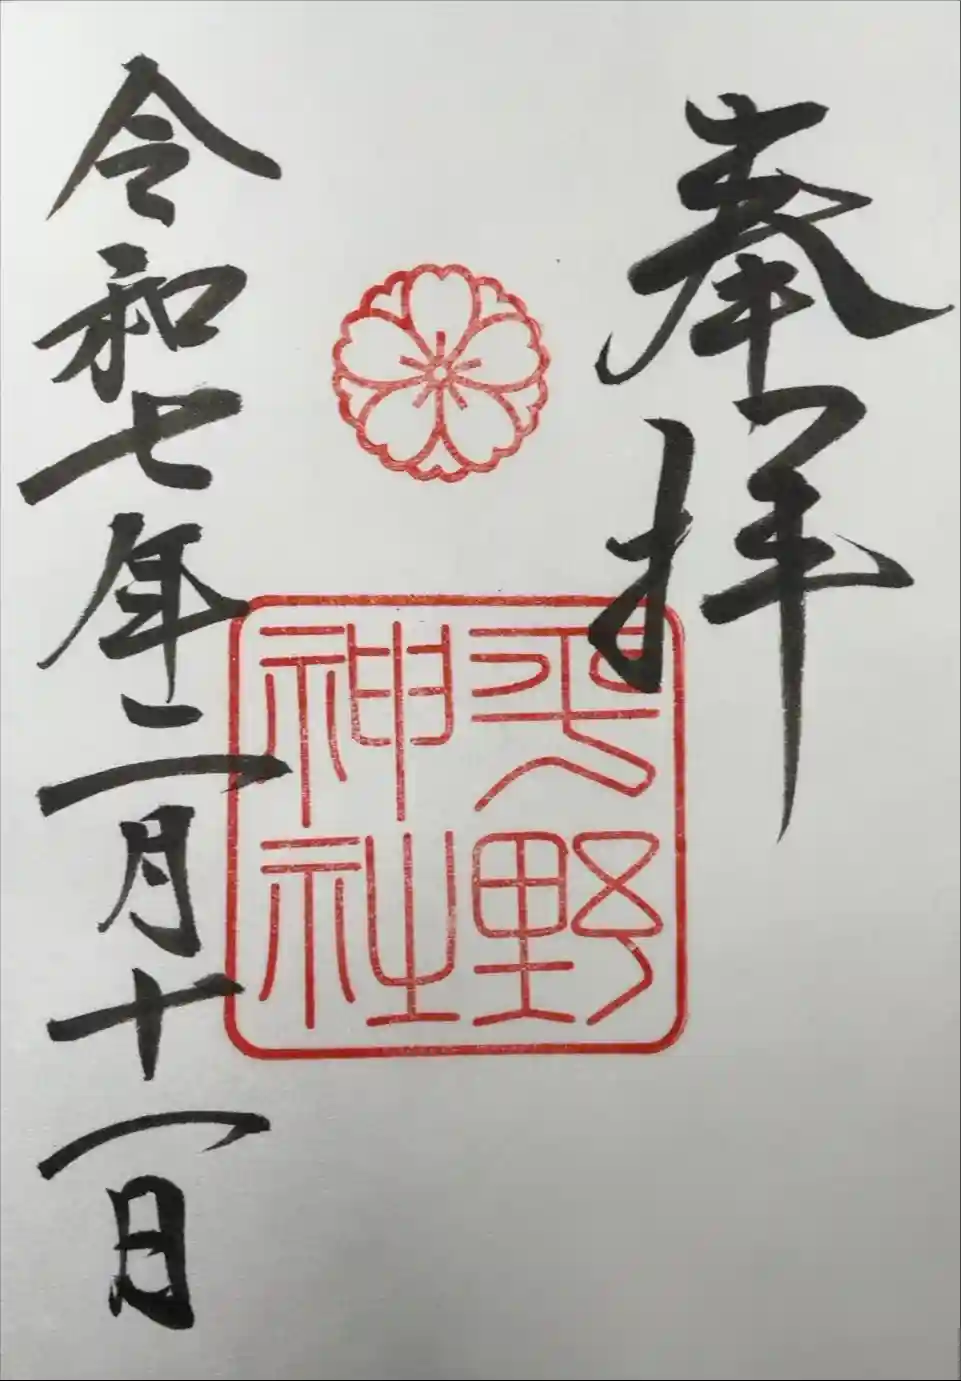 奉拝
平野神社
令和七年二月十一日